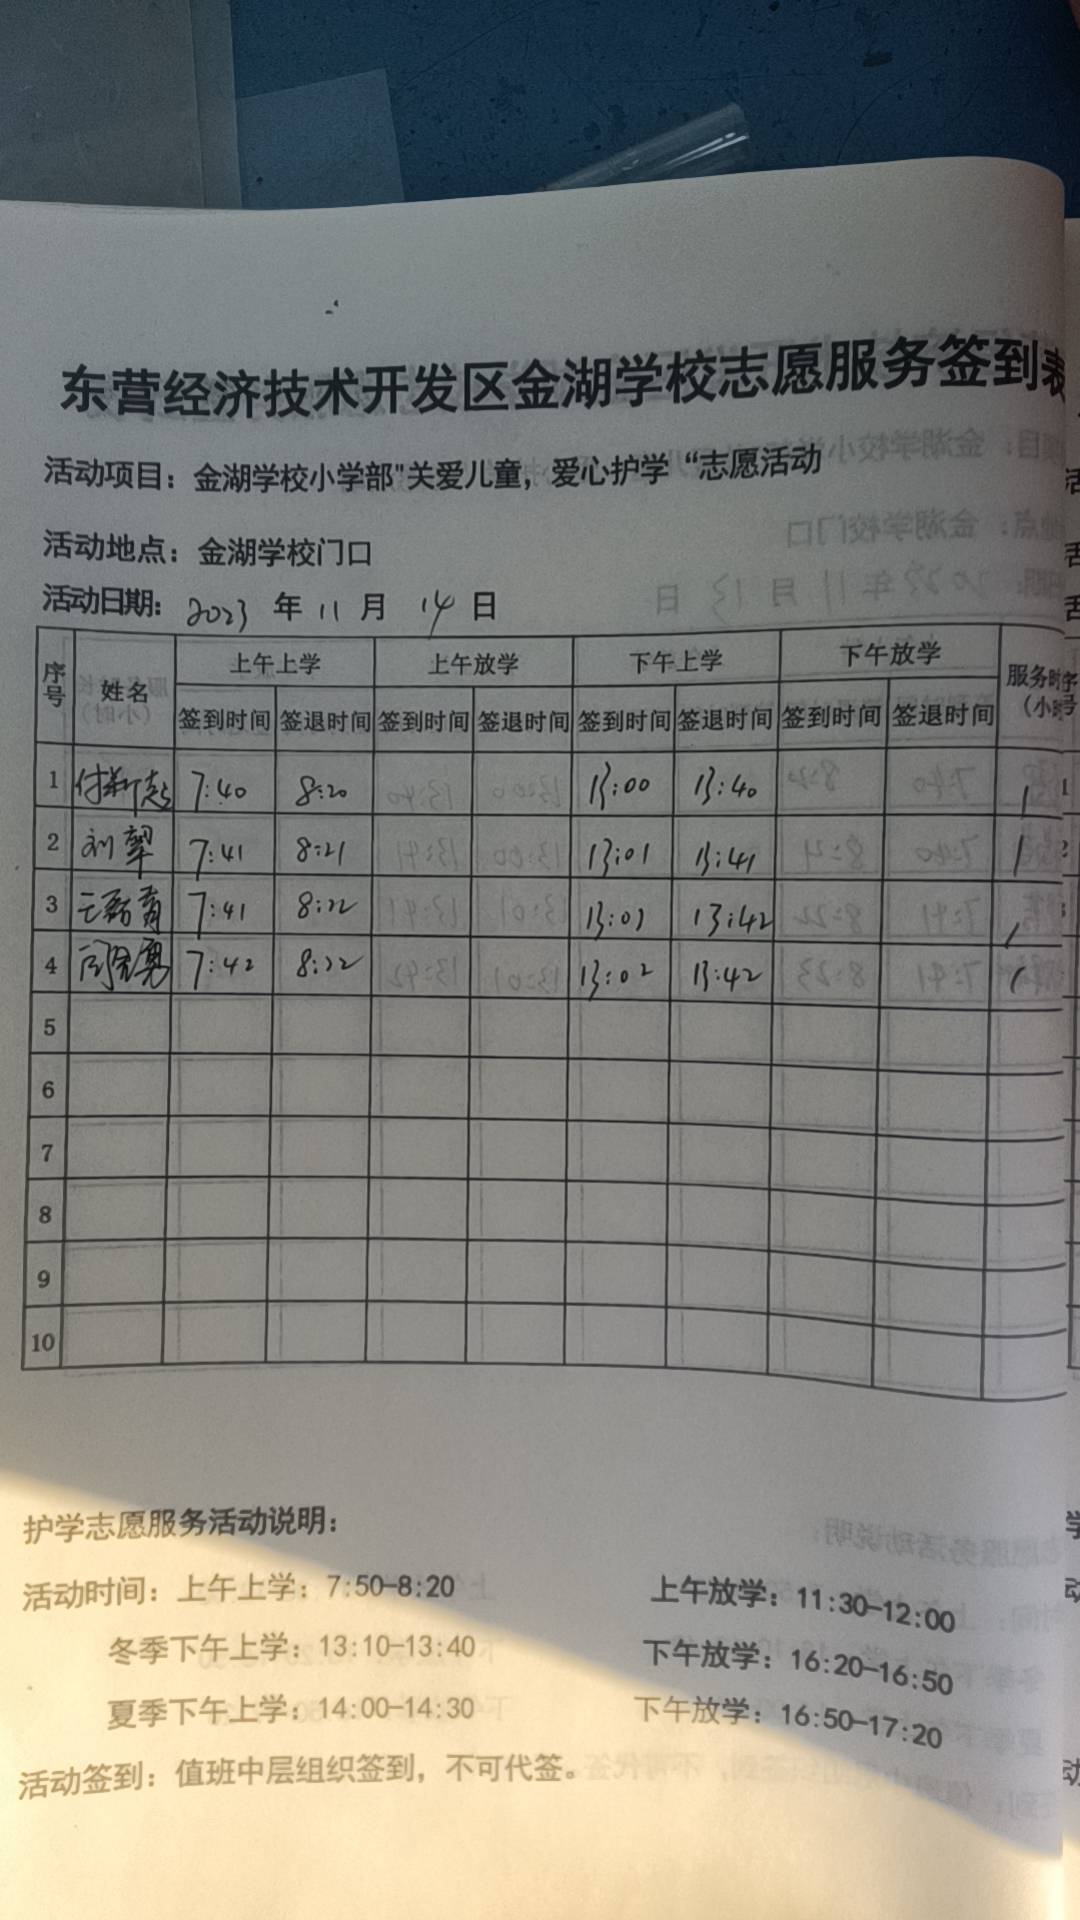 东营经济技术开发区金湖学校志愿服务签到表
活动项目：金湖学校小学部"关爱儿童，爱心护学“志愿活动
活动地点：金湖学校门口
活动日期：2023 年 11 月 14 日
序号 姓名 上午上学 上午放学 下午上学 下午放学 服务时 (小时
签到时间 签退时间 签到时间 签退时间 签到时间 签退时间 签到时间 签退时间
1 7:40 8:20 13:00 13:40 1
2 刘翠 7:41 8:21 13:01 13:41 1
3 7:41 8:22 13:01 13:42 1
4 7:42 8:22 13:02 13:42 1
5
6
7
8
9
10
护学志愿服务活动说明：
活动时间：上午上学：7:50-8:20 上午放学：11:30-12:00
冬季下午上学：13:10-13:40 下午放学：16:20-16:50
夏季下午上学：14:00-14:30 下午放学：16:50-17:20
活动签到：值班中层组织签到，不可代签。